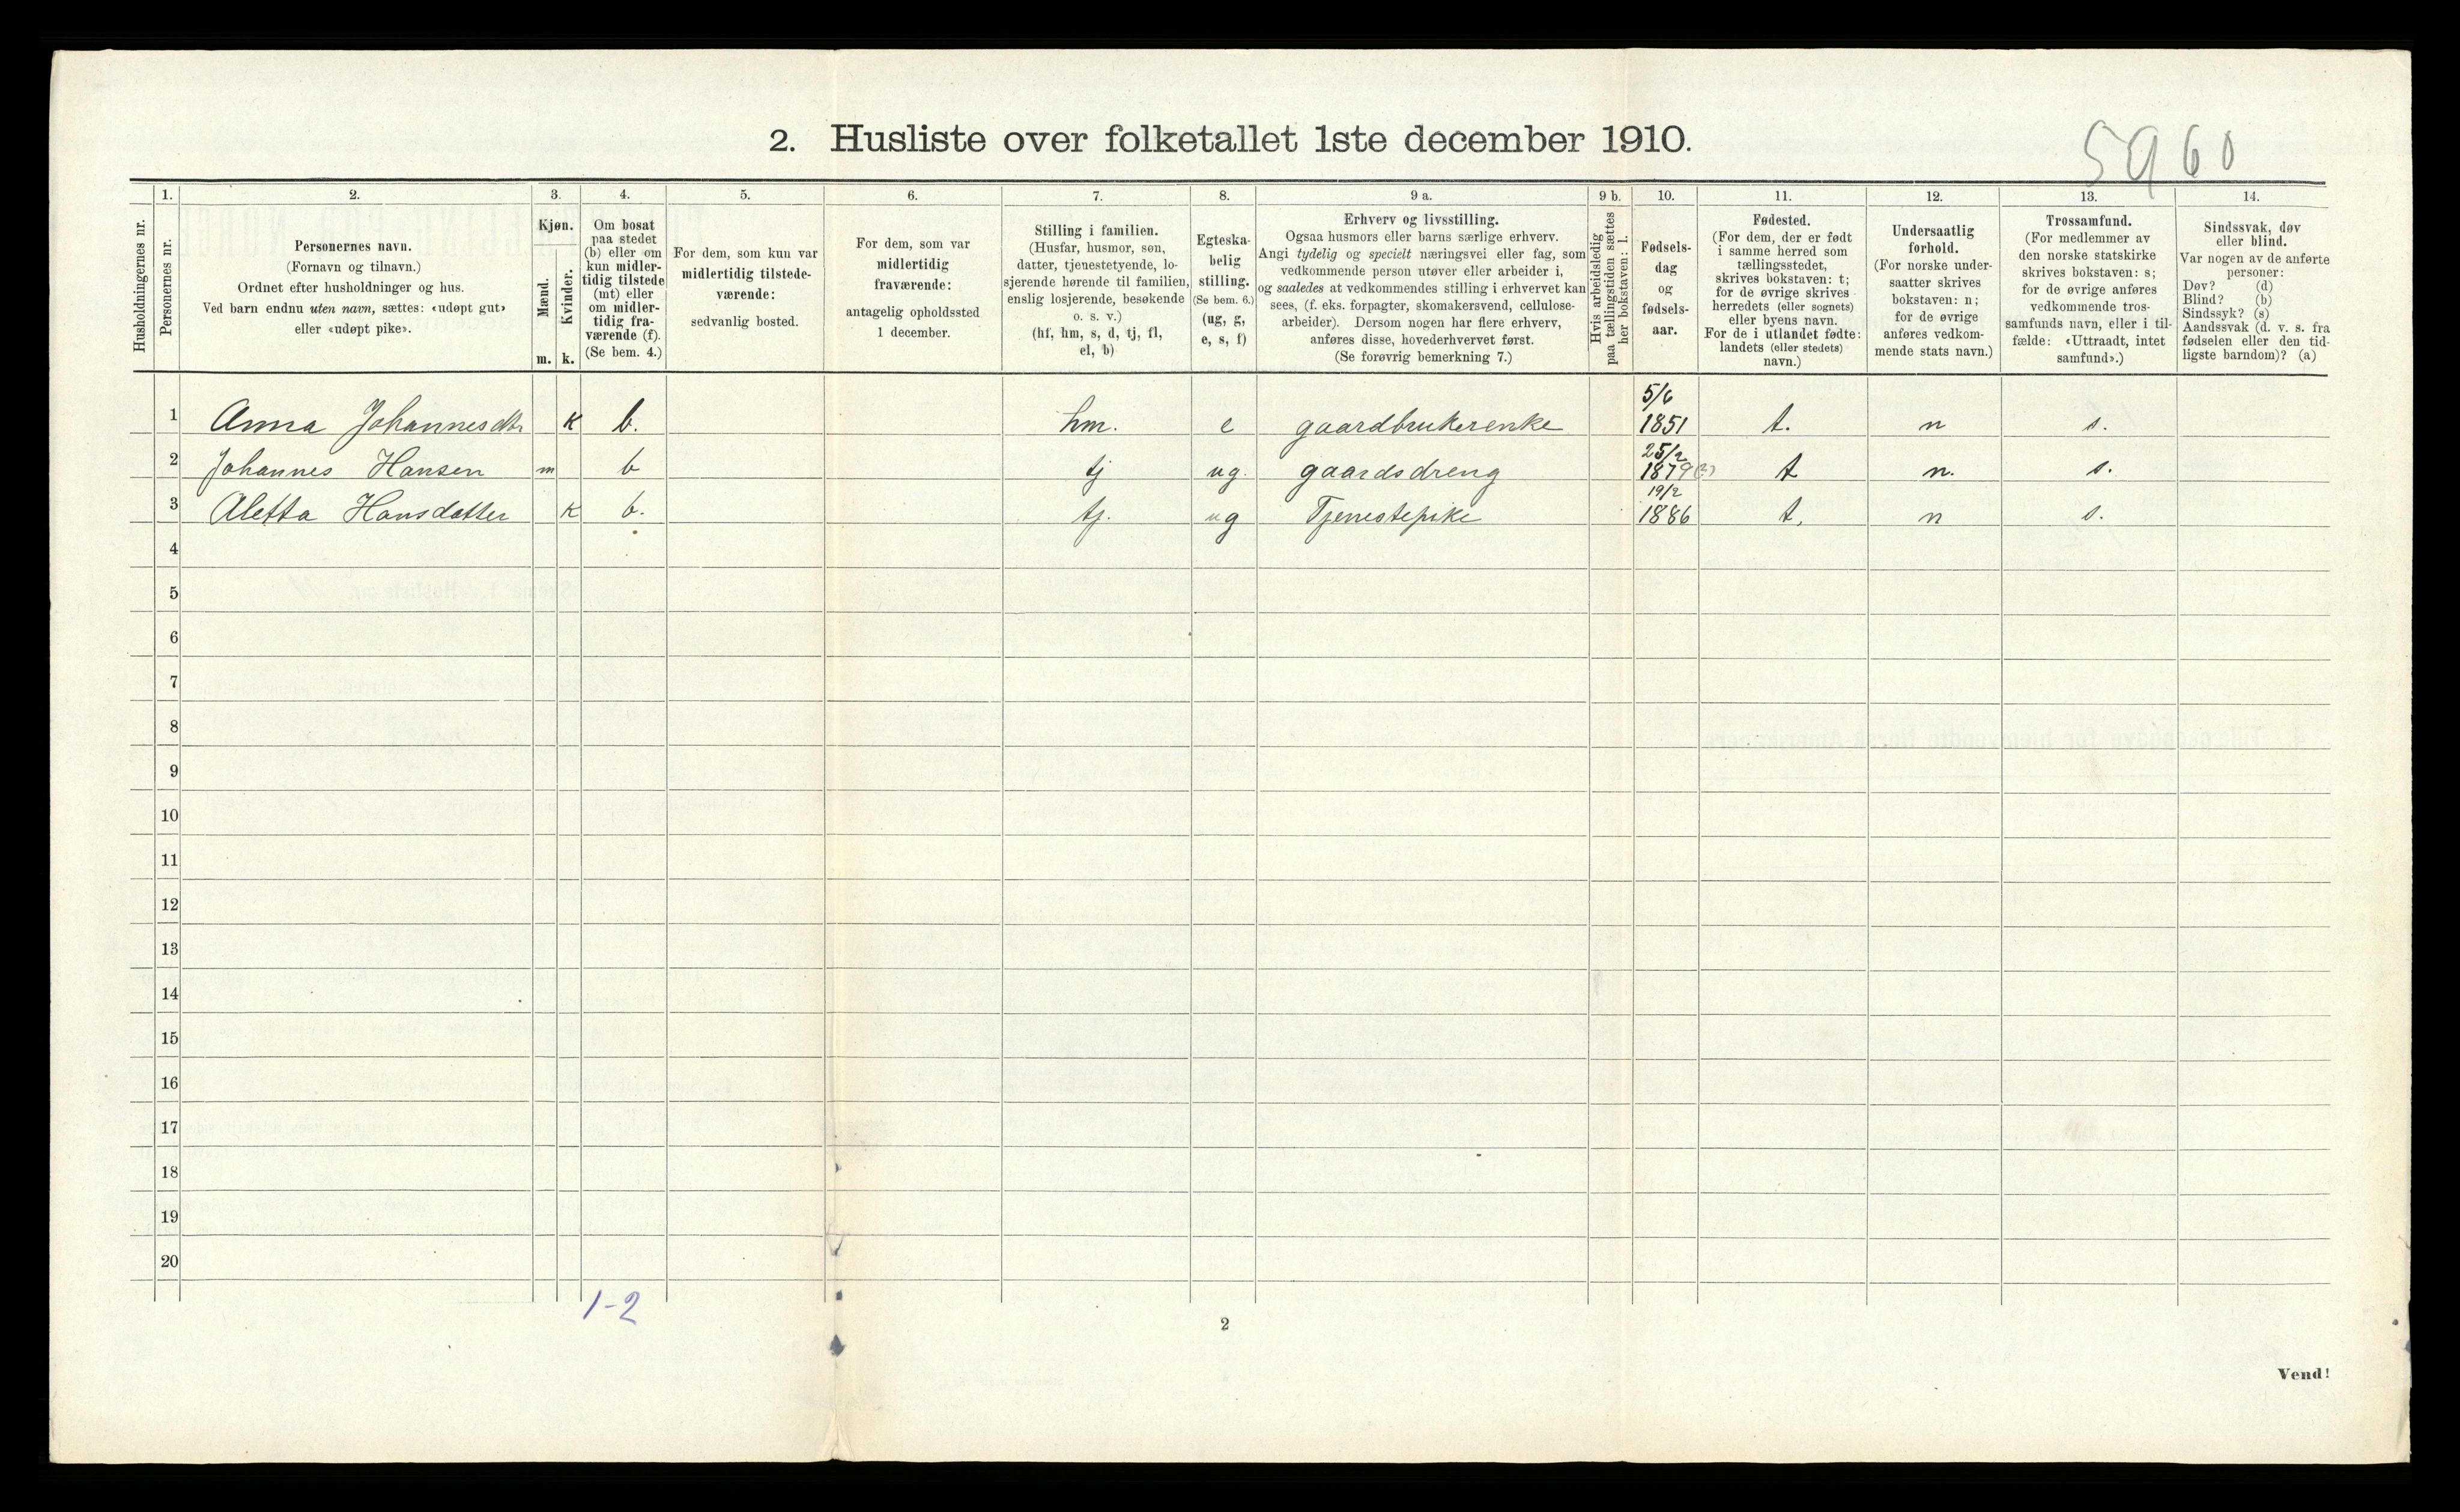 2. Husliste over folketallet 1ste december 1910.
5960
Husholdningernes nr.
1.
Personernes nr.
2.
Personernes navn.
(Fornavn og tilnavn.)
Ordnet efter husholdninger og hus.
Ved barn endnu uten navn, sættes: «udøpt gut»
eller «udøpt pike».
3.
Kjøn.
Mænd.
m.
Kvinder.
k.
4.
Om bosat
paa stedet
(b) eller om
kun midler-
tidig tilstede
(mt) eller
om midler-
tidig fra-
værende (f).
(Se bem. 4.)
5.
For dem, som kun var
midlertidig tilstede-
værende:
sedvanlig bosted.
6.
For dem, som var
midlertidig
fraværende:
antagelig opholdssted
1 december.
7.
Stilling i familien.
(Husfar, husmor, søn,
datter, tjenestetyende, lo-
sjerende hørende til familien,
enslig losjerende, besøkende
o. s. v.)
(hf, hm, s, d, tj, fl,
el, b)
8.
Egteska-
belig
stilling.
(Se bem. 6.)
(ug, g,
e, s, f)
9 a.
Erhverv og livsstilling.
Ogsaa husmors eller barns særlige erhverv.
Angi tydelig og specielt næringsvei eller fag, som
vedkommende person utøver eller arbeider i,
og saaledes at vedkommendes stilling i erhvervet kan
sees, (f. eks. forpagter, skomakersvend, cellulose-
arbeider). Dersom nogen har flere erhverv,
anføres disse, hovederhvervet først.
(Se forøvrig bemerkning 7.)
9 b.
Hvis arbeidsledig
paa tællingstiden sættes
her bokstaven: l.
10.
Fødsels-
dag
og
fødsels-
aar.
11.
Fødested.
(For dem, der er født
i samme herred som
tællingsstedet,
skrives bokstaven: t;
for de øvrige skrives
herredets (eller sognets)
eller byens navn.
For de i utlandet fødte:
landets (eller stedets)
navn.)
12.
Undersaatlig
forhold.
(For norske under-
saatter skrives
bokstaven: n;
for de øvrige
anføres vedkom-
mende stats navn.)
13.
Trossamfund.
(For medlemmer av
den norske statskirke
skrives bokstaven: s;
for de øvrige anføres
vedkommende tros-
samfunds navn, eller i til-
fælde: «Uttraadt, intet
samfund».)
14.
Sindssvak, døv
eller blind.
Var nogen av de anførte
personer:
Døv? (d)
Blind? (b)
Sindssyk? (s)
Aandssvak (d. v. s. fra
fødselen eller den tid-
ligste barndom)? (a)
5/6
1 Anna Johannesdtr k b. hm. e gaardbrukerenke 1851 t. n s.
25/2
2 Johannes Hansen m b tj ug. gaardsdreng 1879(?) t n. s.
19/2
3 Aletta Hansdatter k b. tj. ug Tjenestepike 1886 t. n s.
4
5
6
7
8
9
10
11
12
13
14
15
16
17
18
19
20
1-2
2
Vend!